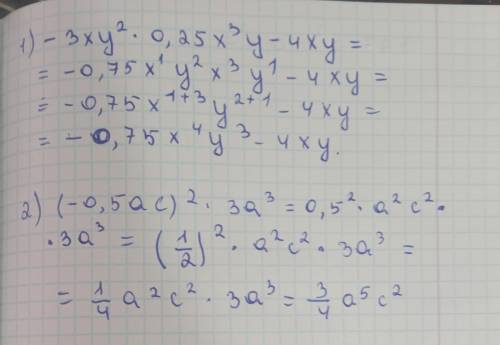 1) - 3xy² · 0,25x³y - 4xy =
= -0,75x¹y²x³y¹ - 4xy =
= -0,75x¹⁺³y²⁺¹ - 4xy =
= -0,75x⁴y³ - 4xy.
2) (-0,5ac)² · 3a³ = 0,5² · a²c² ·
· 3a³ = (1/2)² · a²c² · 3a³ =
= 1/4 a²c² · 3a³ = 3/4 a⁵c²